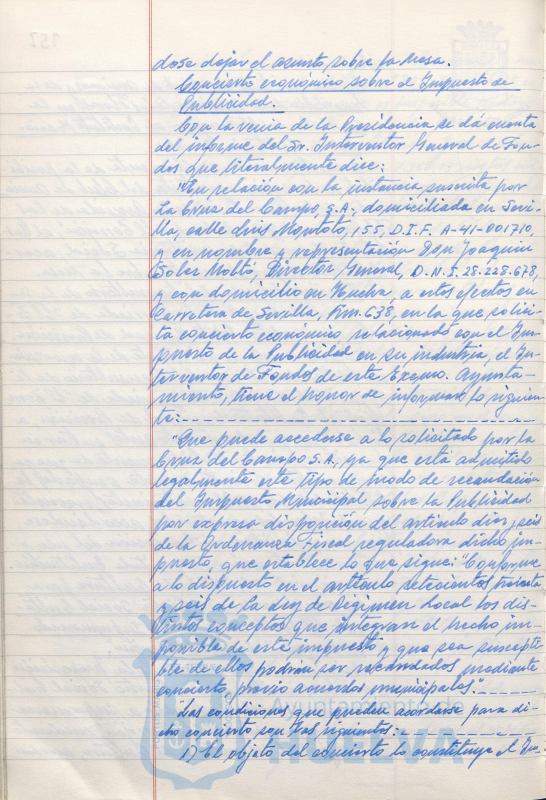 dose dejar el asunto sobre la Mesa.
Concierto económico sobre el Impuesto de
Publicidad.
Con la venia de la Presidencia se dá cuenta
del informe del Sr. Interventor General de Fon-
dos que literalmente dice:
"En relación con la instancia suscrita por
La Cruz del Campo, S.A., domiciliada en Sevi-
lla, calle Luis Montoto, 155, D.I.F. A-41-001710,
y en nombre y representación Don Joaquin
Soler Moltó, Director General, D.N.I. 28.228.678,
y con domicilio en Huelva, a estos efectos en
Carretera de Sevilla, Km. 638, en la que solici-
ta concierto económico relacionado con el Im-
puesto de la Publicidad en su industria, el In-
terventor de Fondos de este Excmo. Ayunta-
miento, tiene el honor de informar lo siguien-
te:
"Que puede accederse a lo solicitado por la
Cruz del Campo S.A., ya que está admitido
legalmente este tipo de modo de recaudación
del Impuesto Municipal sobre la Publicidad
por expresa disposición del artículo diez y seis
de la Ordenanza Fiscal reguladora dicho im-
puesto, que establece lo que sigue: "Conforme
a lo dispuesto en el artículo setecientos treinta
y seis de la Ley de Régimen Local los dis-
tintos conceptos que integran el hecho im-
ponible de este impuesto y que sea suscepti-
ble de ellos podrán ser recaudados mediante
concierto, previo acuerdos municipales".
Las condiciones que pueden acordarse para di-
cho concierto son las siguientes:
1) El objeto del concierto lo constituye el Im-
Ayuntamiento de
HUELVA